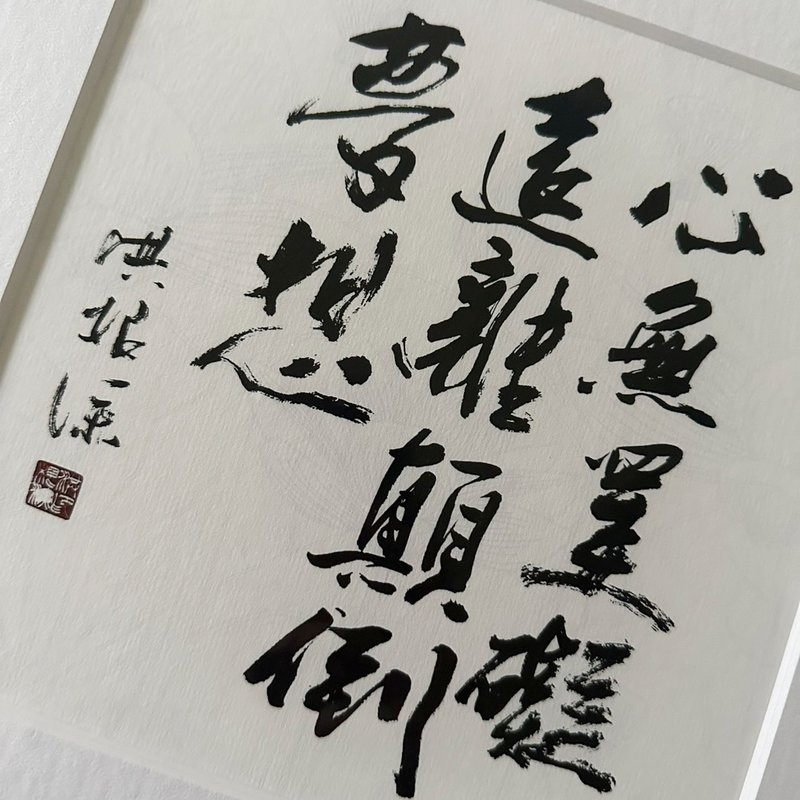 心無罣礙
遠離顛倒
夢想
洪根深